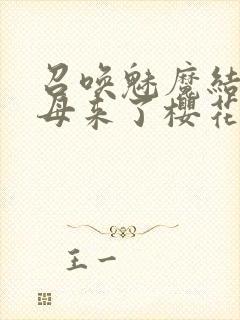 召唤魅魔结
母来了樱花
王一